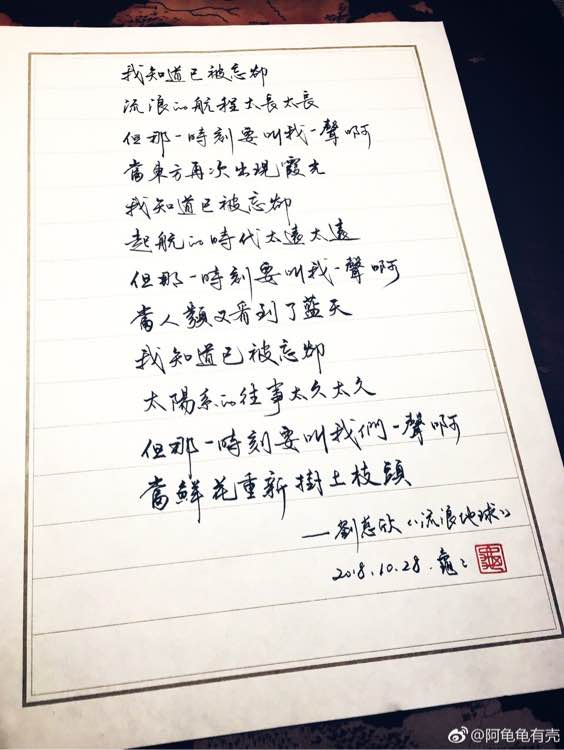 我知道已被忘卻
流浪的航程太長太長
但那一時刻要叫我一聲啊
當東方再次出現霞光
我知道已被忘卻
起航的時代太遠太遠
但那一時刻要叫我一聲啊
當人類又看到了藍天
我知道已被忘卻
太陽系的往事太久太久
但那一時刻要叫我們一聲啊
當鮮花重新掛上枝頭
——劉慈欣《流浪地球》
2018.10.28.龜二
@阿龟龟有壳